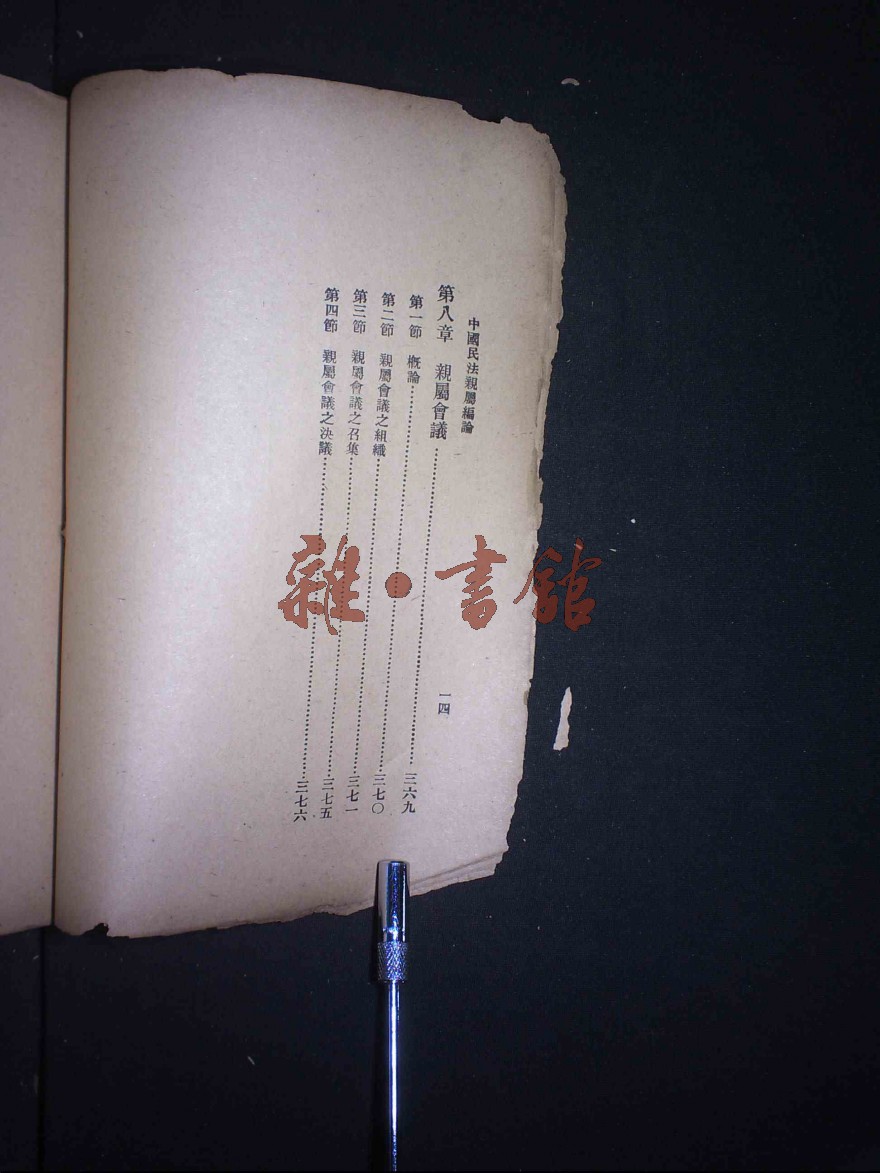 中國民法親屬編論 一四
第八章 親屬會議……三六九
第一節 概論……三七〇
第二節 親屬會議之組織……三七一
第三節 親屬會議之召集……三七五
第四節 親屬會議之決議……三七六
雜•書館